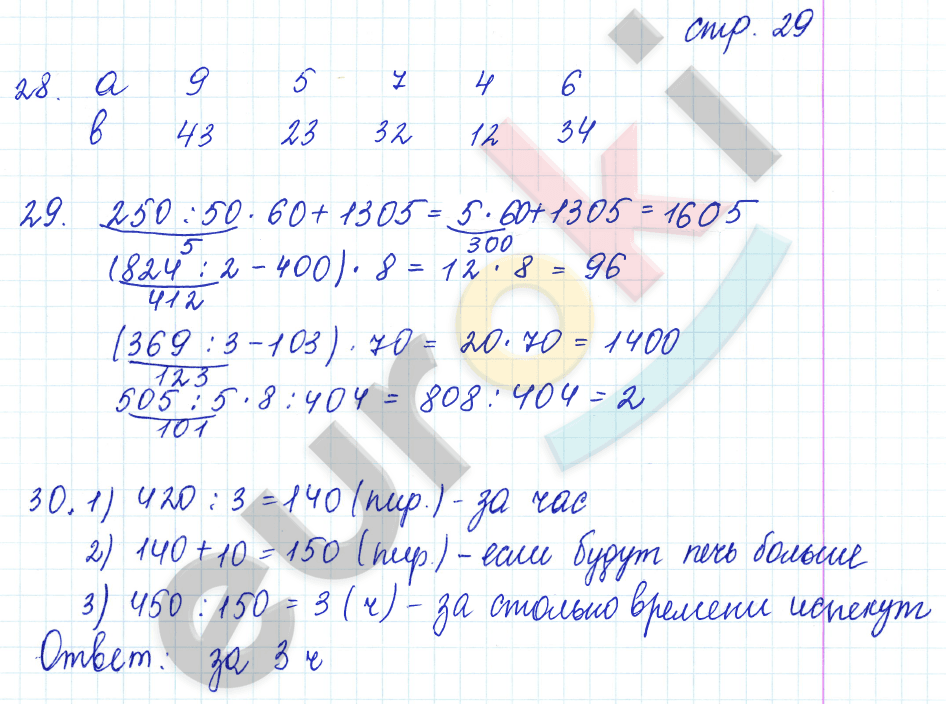 стр. 29
28. а 9 5 7 4 6
в 43 23 32 12 34
29. 250 : 50 · 60 + 1305 = 5 · 60 + 1305 = 1605
5 300
(824 : 2 - 400) · 8 = 12 · 8 = 96
412
(369 : 3 - 103) · 70 = 20 · 70 = 1400
123
505 : 5 · 8 : 404 = 808 : 404 = 2
101
30. 1) 420 : 3 = 140 (пир.) - за час
2) 140 + 10 = 150 (пир.) - если будут печь больше
3) 450 : 150 = 3 (ч) - за столько времени испекут
Ответ: за 3 ч
euroki